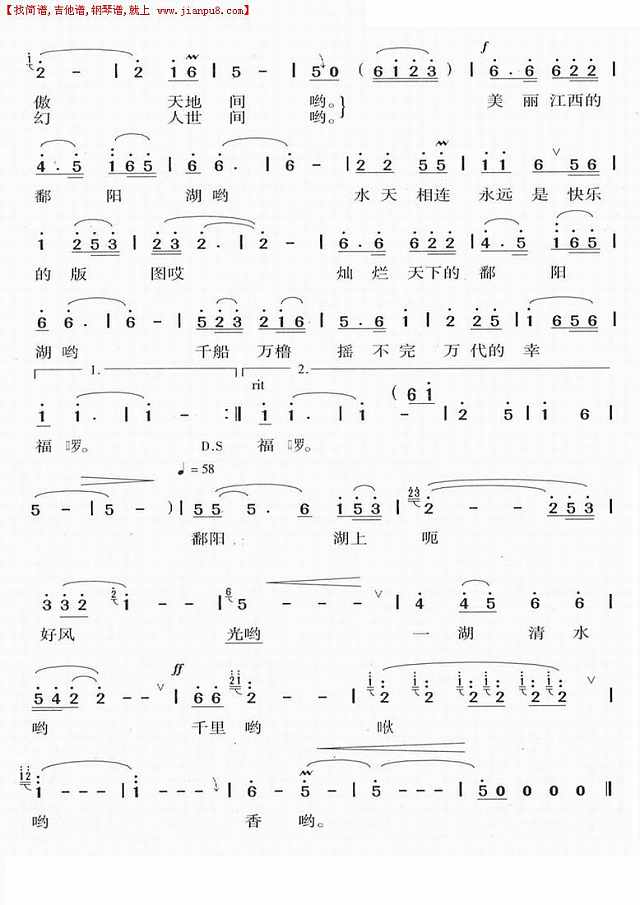 【找简谱,吉他谱,钢琴谱,就上 www.jianpu8.com】
f
2 - | 2 16 | 5 - | 50 (6123) | 6.6 622 |
傲 天地 间 哟。 美 丽 江西的
幻 人世 间 哟。
4.5 165 | 6 6. | 6 - | 2 2 55 | 11 6 ∨ 56 |
鄱 阳 湖 哟 水 天 相连 永远 是 快乐
1 253 | 23 2. | 2 - | 6.6 622 | 4.5 165 |
的 版 图 哎 灿 烂 天下的 鄱 阳
6 6. | 6 - | 523 216 | 5.6 1 | 2 25 | 1 656 |
湖 哟 千船 万橹 摇 不 完 万 代的 幸
1. 2.
rit
1 1. | 1 - :‖ 1 1. | 1 - (61 | 2 5 | 1 6 |
福 啰。 D.S 福 啰。
♩ = 58
5 - | 5 - ) | 55 5. 6 153 | 2 - - 253 |
鄱阳 湖上 呃
3 32 1 - - 5 - - - ∨ | 4 45 6 6 |
好风 光哟 一 湖 清 水
542 2 - - ∨ | 66 2 - - | 2 2 2 2 2 2 ∨ |
ff
哟 千里 哟 啾
1 - - - | 1 - - - | 6 - 5 - | 5 - - - | 50 0 0 0 ‖
哟 香 哟。